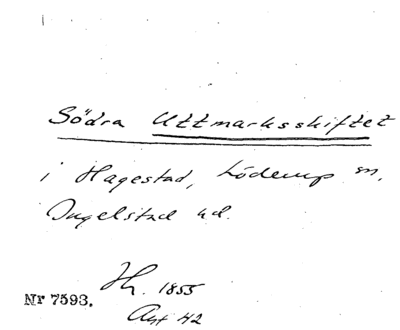 Södra Uttmarksskiftet
i Hagestad, Löderup sn.
Ingelstad hd.
Hh. 1855
Nr 7593.
Akt 42